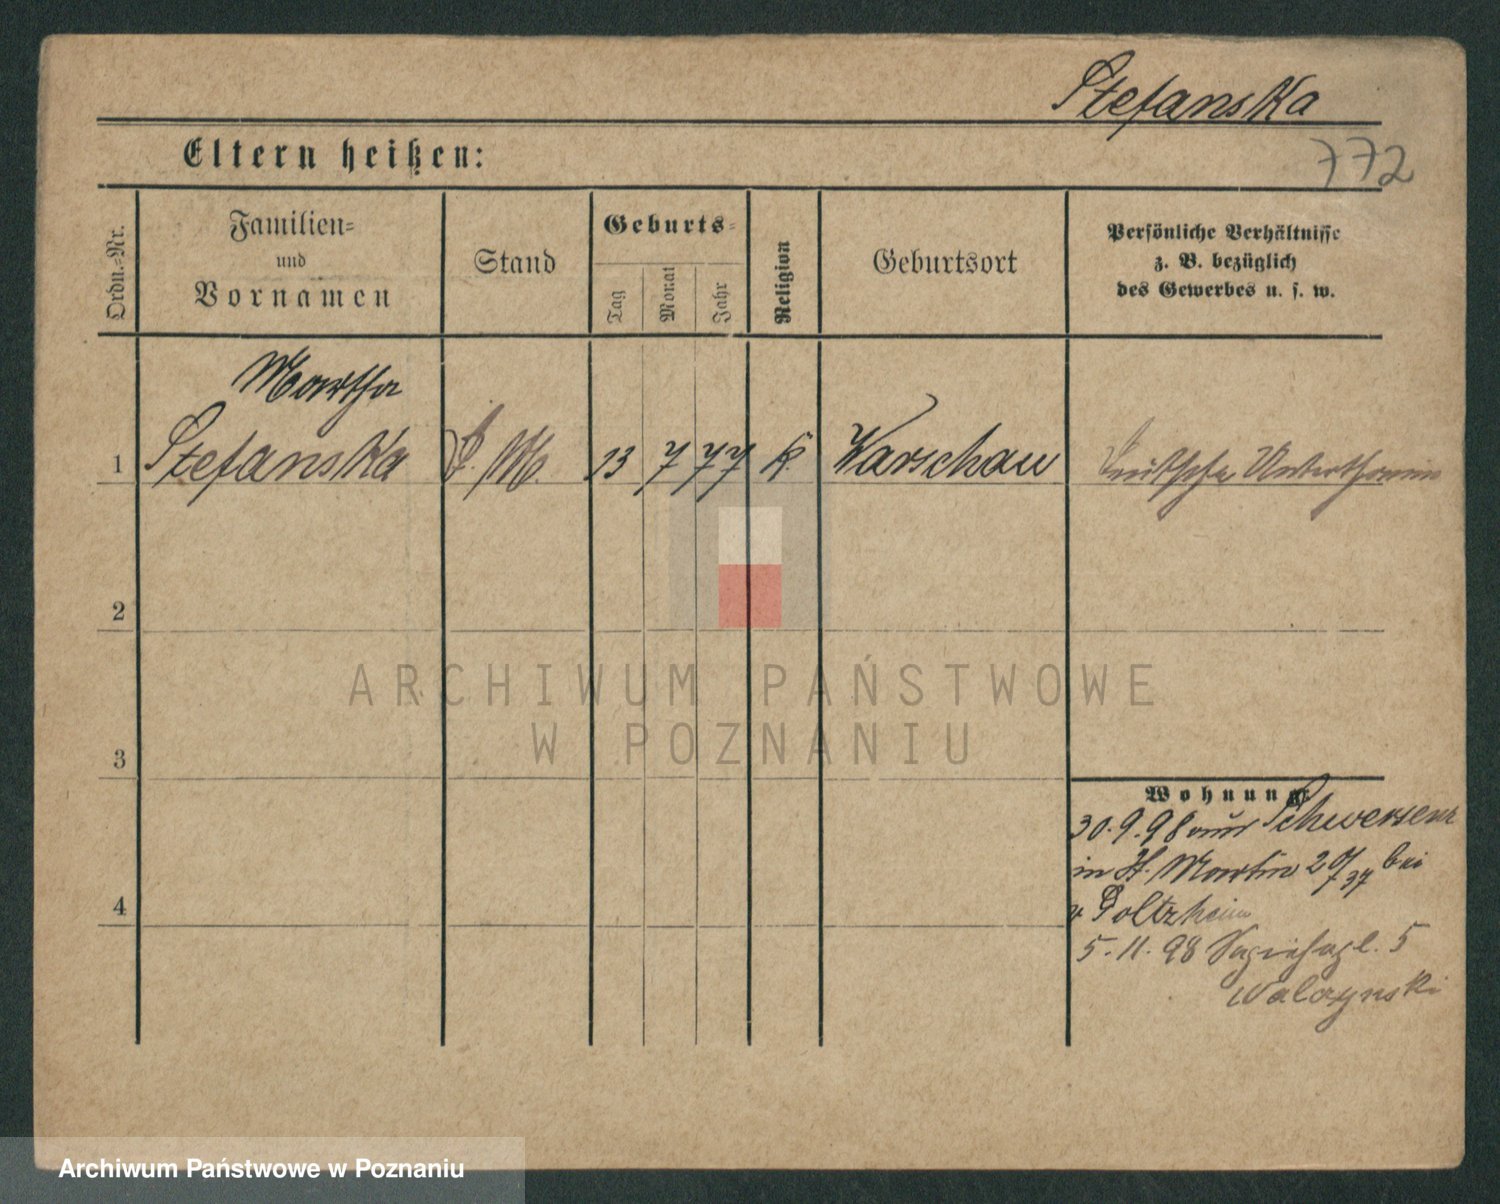 Stefanska
Eltern heißen:
772
Ordn.-Nr.
Familien-
und
Vornamen
Stand
Geburts-
Tag
Monat
Jahr
Religion
Geburtsort
Persönliche Verhältnisse
z. B. bezüglich
des Gewerbes u. s. w.
Martha
1 Stefanska D. M. 13 7 77 k. Warschau Deutsche Unterthanin
2
3
4
ARCHIWUM PAŃSTWOWE
W POZNANIU
Wohnung
30.9.98 aus Schwersenz
in St. Martin bei
v Goltzheim
5.11.98 5
Archiwum Państwowe w Poznaniu